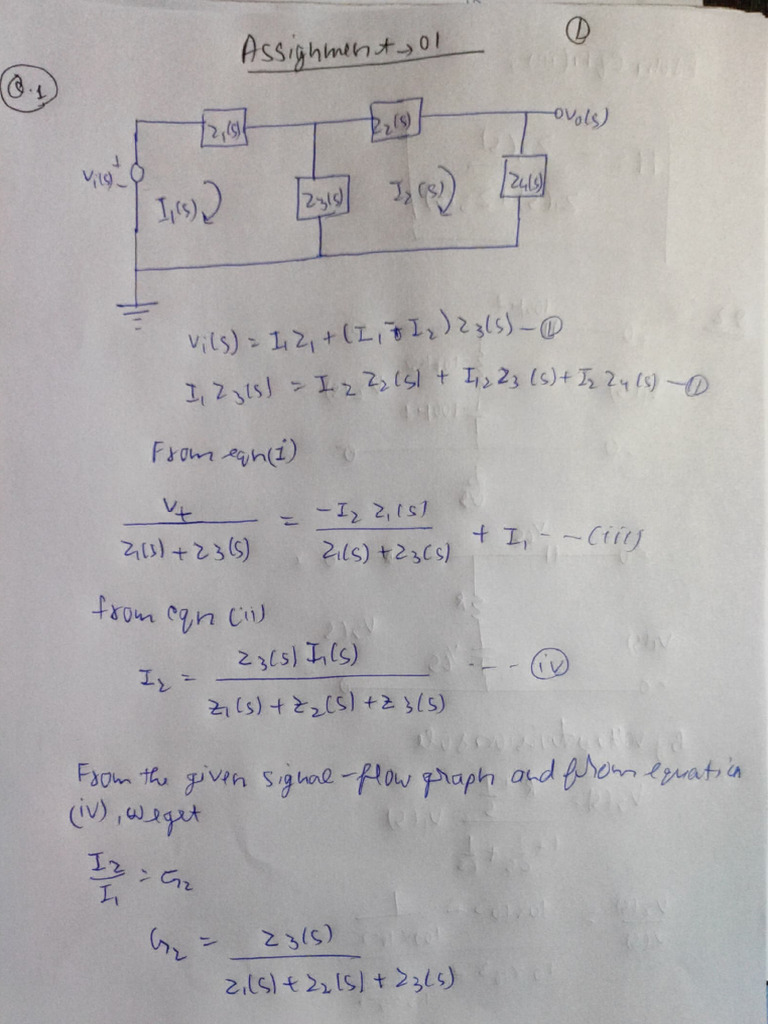 ①
Assignment → 01
Q.1
Z1(s)
Z2(s)
oVo(s)
Vi(s)
+
-
I1(s)
Z3(s)
I2(s)
Z4(s)
Vi(s) = I1Z1 + (I1 - I2) Z3(s) - ⅱ
I1 Z3(s) = I2 Z2(s) + I2Z3(s) + I2 Z4(s) - ⅰ
From eqn(i)
V+ / Z1(s) + Z3(s) = -I2 Z1(s) / Z1(s) + Z3(s) + I1 - - (iii)
from eqn (ii)
I2 = Z3(s) I1(s) / Z1(s) + Z2(s) + Z3(s) - - - (iv)
From the given signal-flow graph and from equation
(iv), we get
I2 / I1 = G2
G2 = Z3(s) / Z1(s) + Z2(s) + Z3(s)